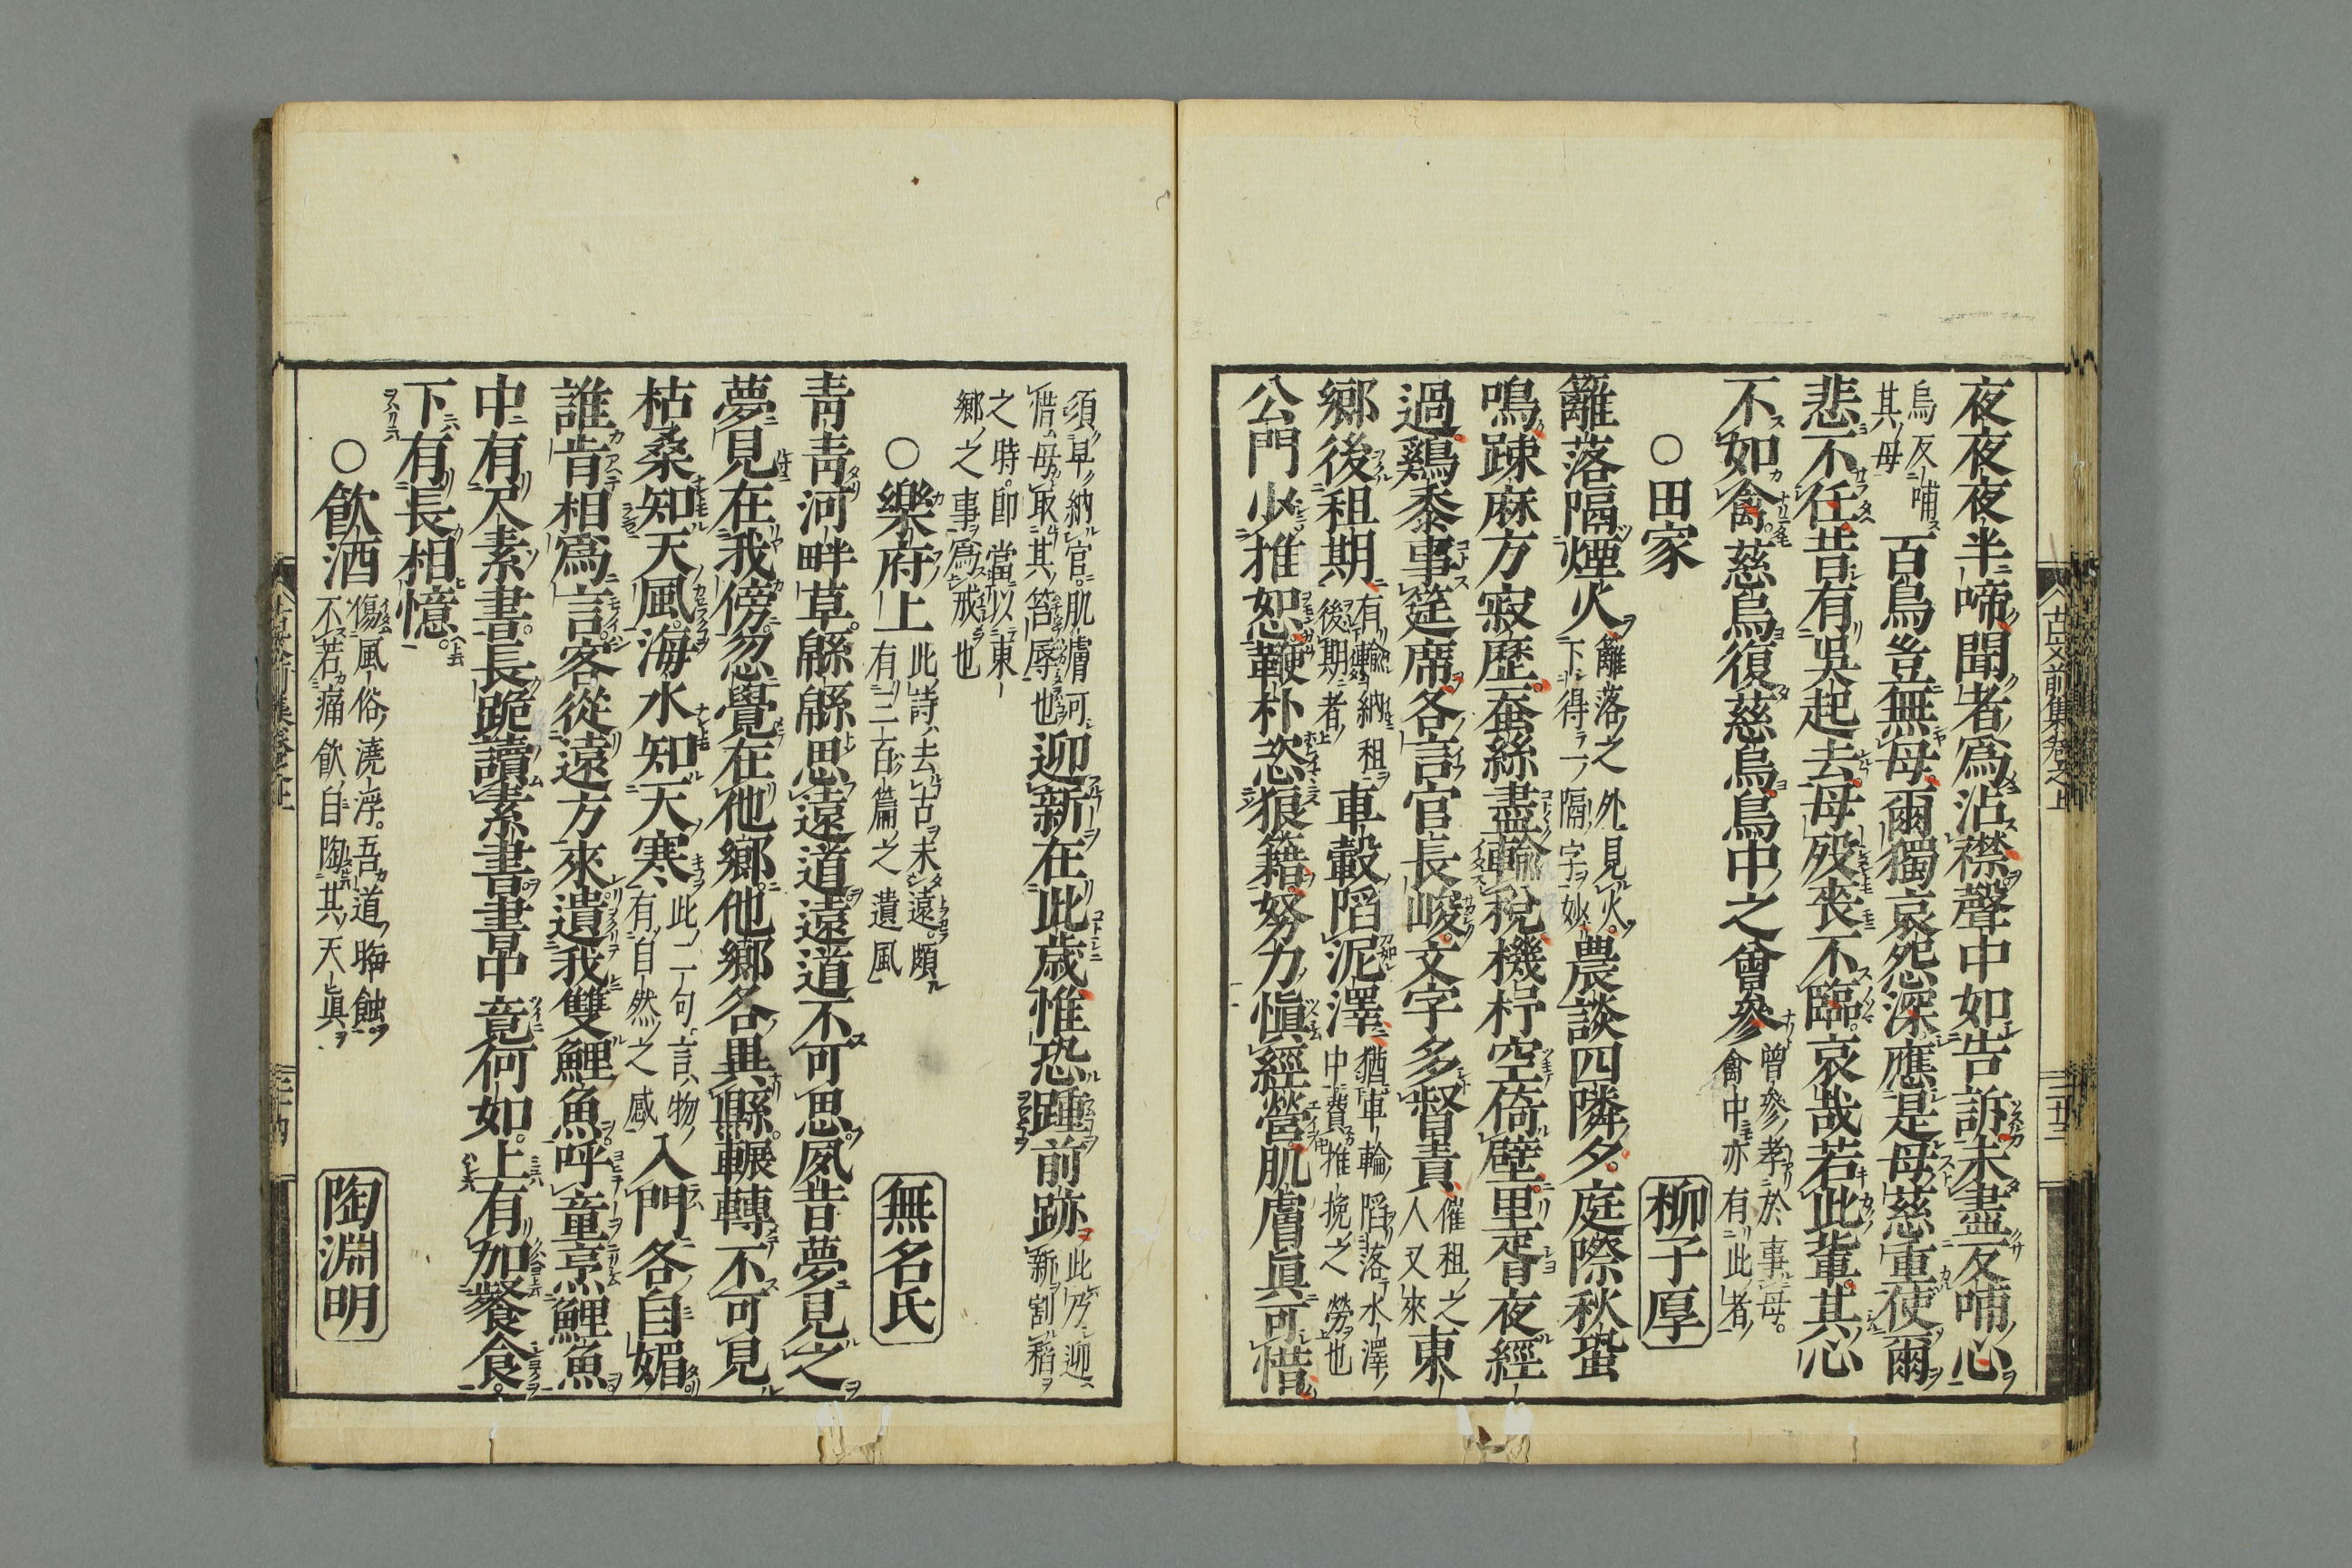 夜夜夜半啼聞者爲沾襟聲中如告訴未盡反哺心
烏反哺其母百鳥豈無母爾獨哀怨深應是母慈重使爾
悲不任昔有吳起去母殁喪不臨哀哉若此輩其心
不如禽慈烏復慈烏鳥中之曾參曾參孝於事母禽中亦有此者
○田家 柳子厚
籬落隔煙火籬落之外見火下得一隔字妙農談四隣夕庭際秋蛩
鳴踈麻方寂歷蚕絲盡輸稅機杼空倚壁里胥夜經
過鷄黍事筵席各言官長峻文字多督責催租之人又來東
鄉後租期有輸納租後期者車轂陷泥澤猶車輪陷落水澤中費推挽之勞也
公門少推恕鞭朴恣狼籍努力愼經營肌膚眞可惜
古文前集卷之上
二十三
須早納官肌膚可惜毋取其笞辱也迎新在此歲惟恐踵前跡此乃迎新割稻
之時卽當以東鄉之事爲戒也
○樂府上此詩去古未遠頗有三百篇之遺風 無名氏
靑靑河畔草緜緜思遠道遠道不可思夙昔夢見之
夢見在我傍忽覺在他鄉他鄉各異縣輾轉不可見
枯桑知天風海水知天寒此二句言物有自然之感入門各自媚
誰肯相爲言客從遠方來遺我雙鯉魚呼童烹鯉魚
中有尺素書長跪讀素書書中竟何如上有加餐食
下有長相憶
○飮酒傷風俗澆浮吾道晦蝕不若痛飮自陶其天眞 陶淵明